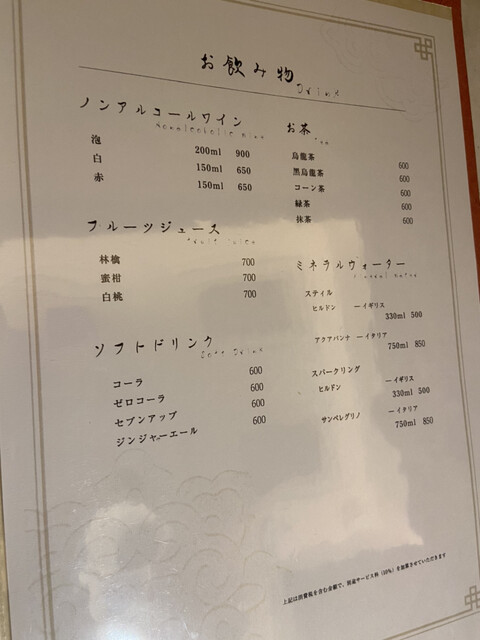 お飲み物
Drink
ノンアルコールワイン
Nonalcoholic wine
泡 200ml 900
白 150ml 650
赤 150ml 650
フルーツジュース
Fruit juice
林檎 700
蜜柑 700
白桃 700
ソフトドリンク
Soft Drink
コーラ 600
ゼロコーラ 600
セブンアップ 600
ジンジャーエール 600
お茶
Tea
烏龍茶 600
黒烏龍茶 600
コーン茶 600
緑茶 600
抹茶 600
ミネラルウォーター
Mineral Water
スティル
ヒルドン ーイギリス
330ml 500
アクアパンナ ーイタリア
750ml 850
スパークリング
ヒルドン ーイギリス
330ml 500
サンペレグリノ ーイタリア
750ml 850
上記は消費税を含む金額で、別途サービス料（10%）を加算させていただきます